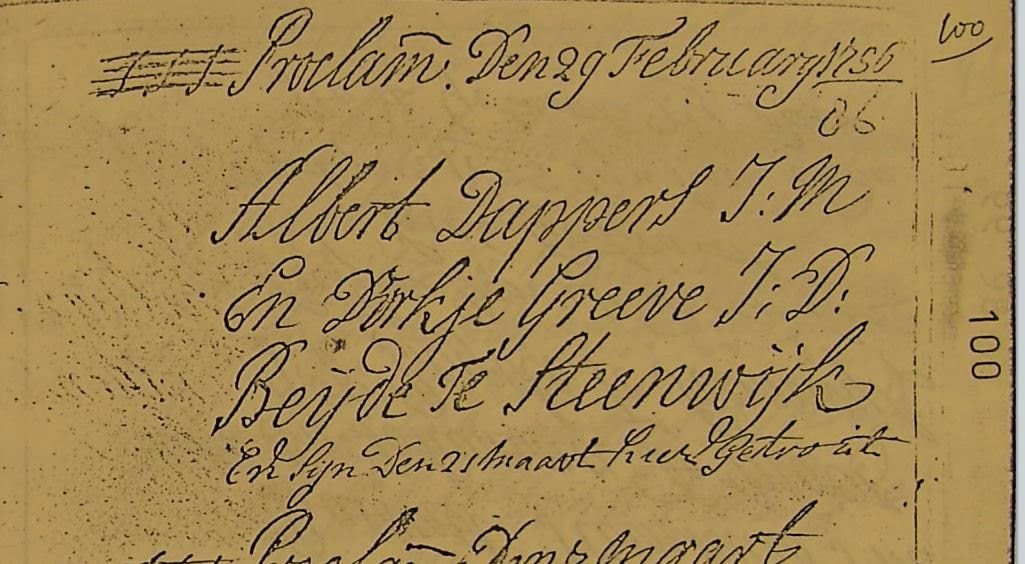 100
Proclam̄: Den 29 February 1756
06
Albert Dappers J: M
En Dörkje Greeve J: D:
Beÿde Te Steenwÿk
En Sÿn Den 21 maart hier Getrout
Proclam̄ Den maart
100